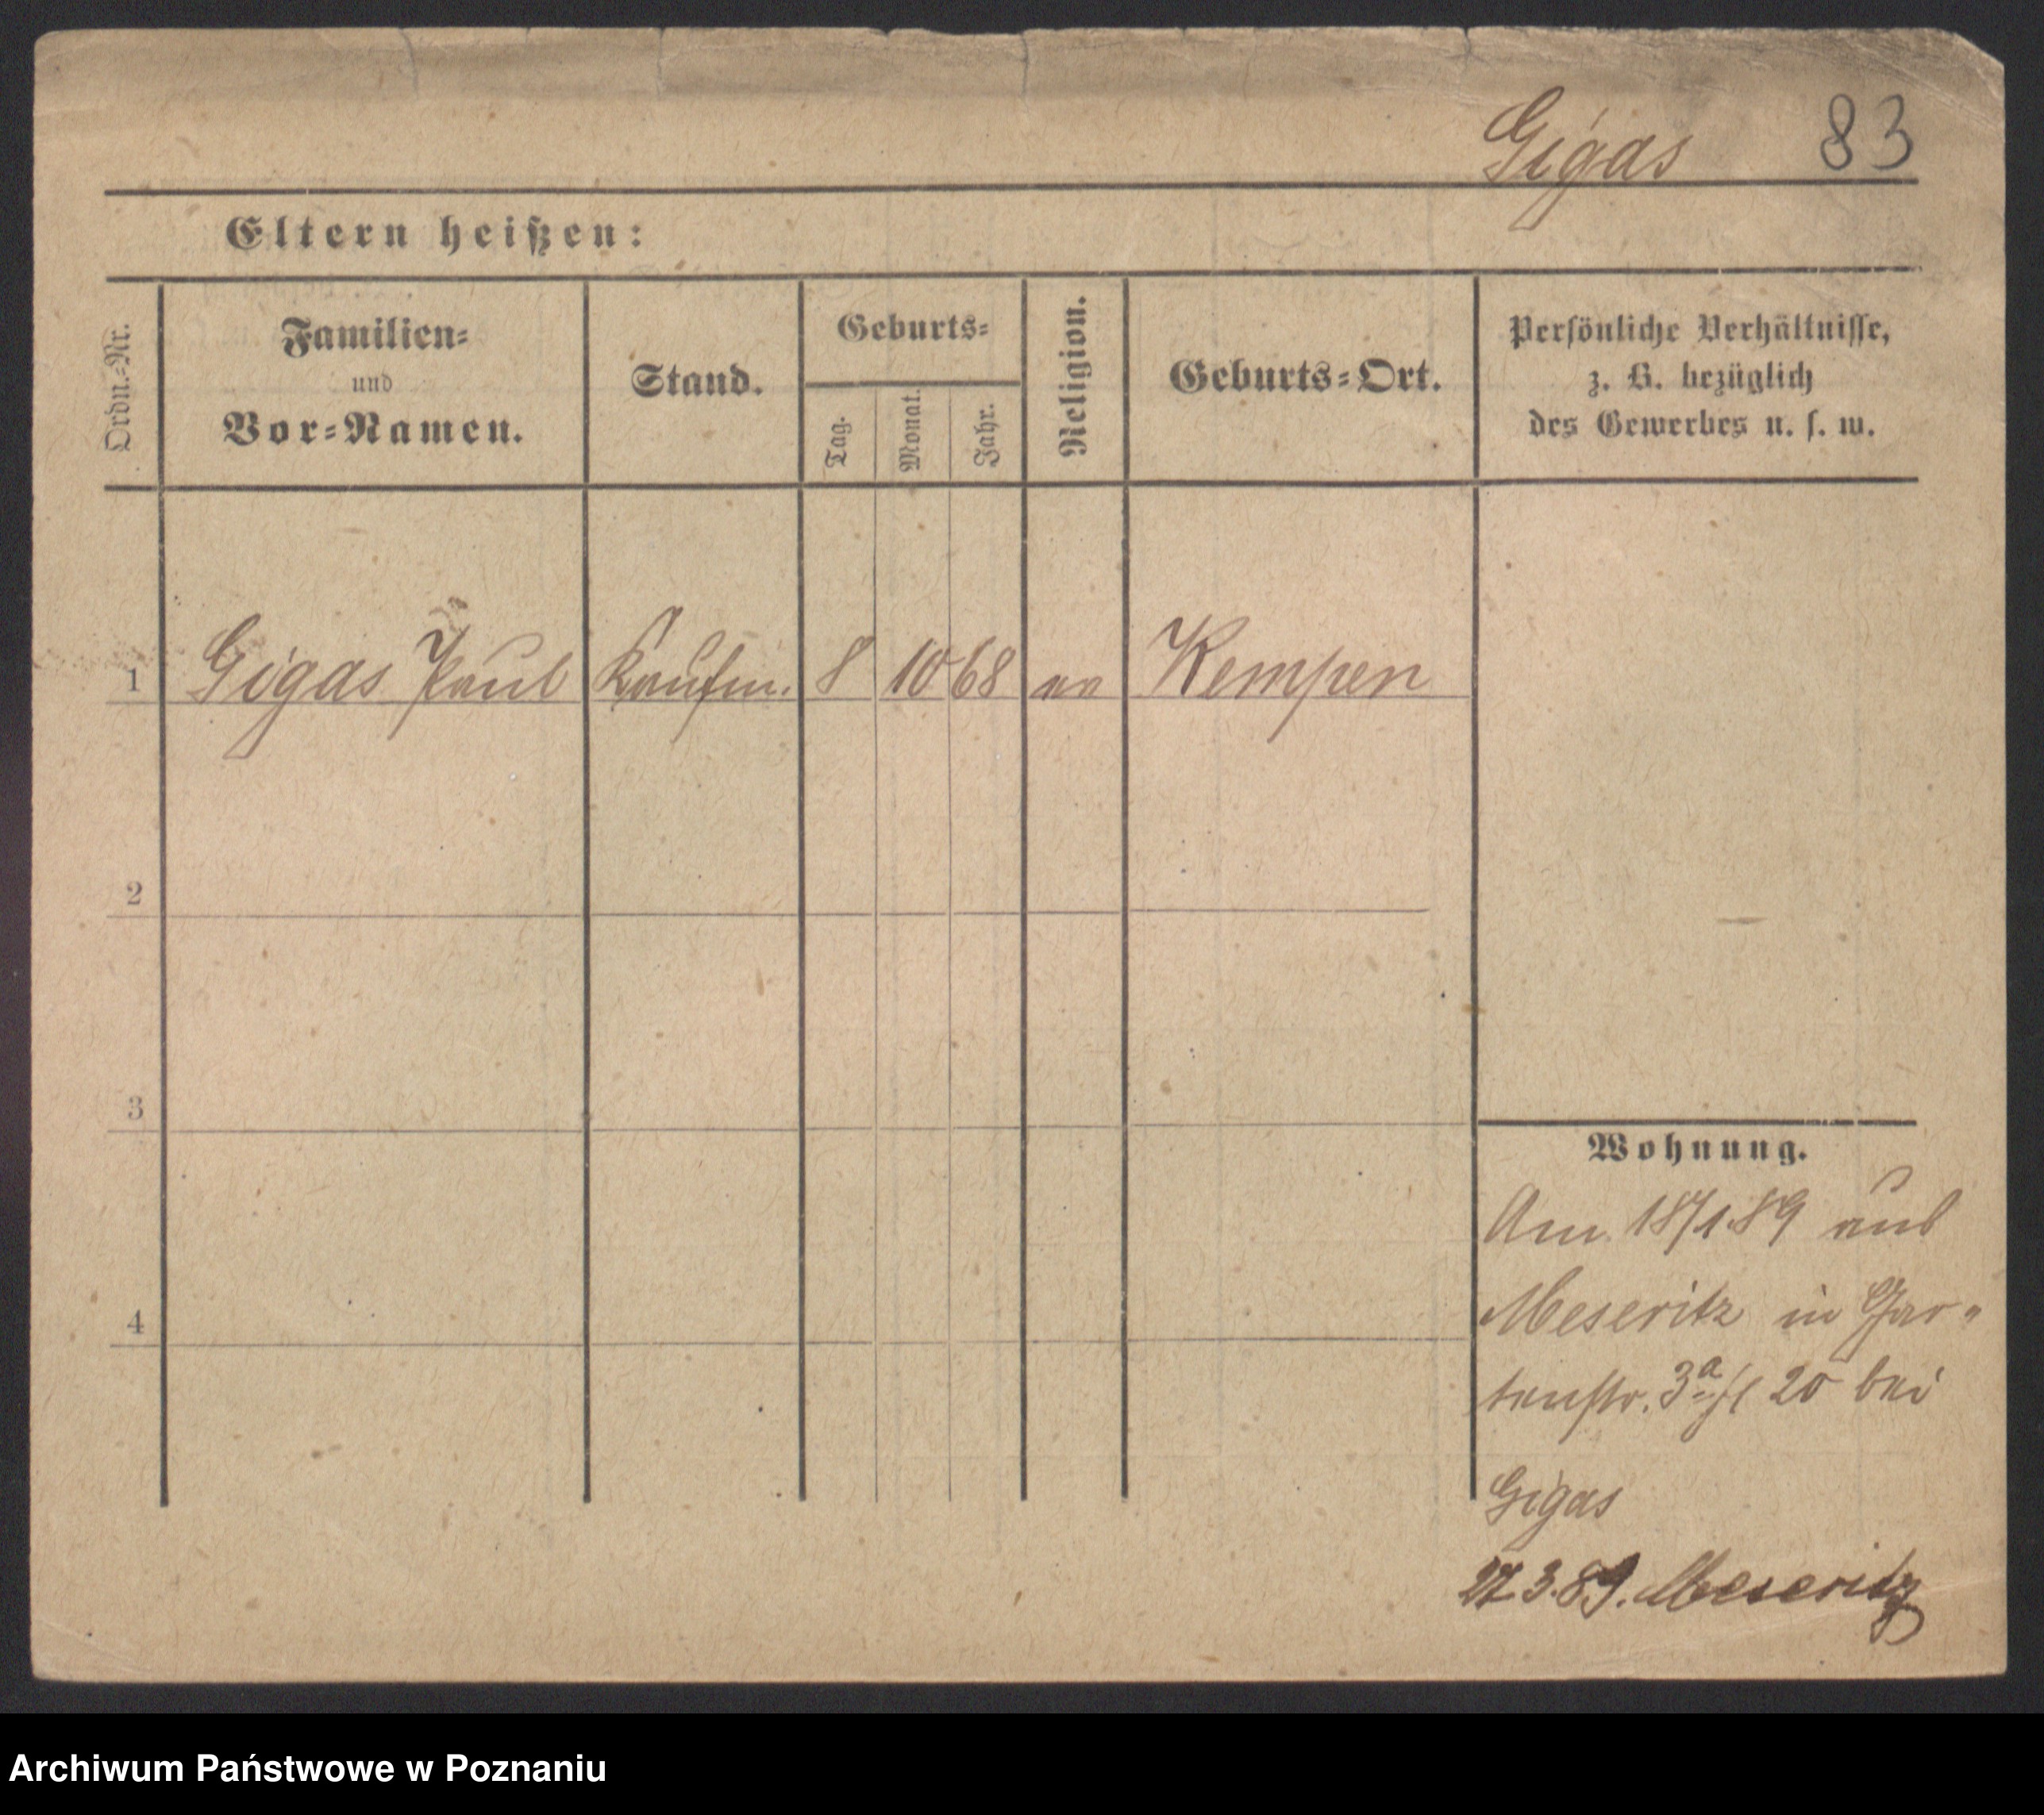 Gigas 83
Eltern heißen:
Ordn.-Nr.
Familien-
und
Vor-Namen.
Stand.
Geburts-
Tag.
Monat.
Jahr.
Religion.
Geburts-Ort.
Persönliche Verhältnisse,
z. B. bezüglich
des Gewerbes u. s. w.
1 Gigas Paul Kaufm. 8 10 68 ev Kempen
2
3
4
Wohnung.
Am 18/1 89 aus
Meseritz in Gar-
tenstr. 3a 20 bei
Gigas
27.3.89. Meseritz
Archiwum Państwowe w Poznaniu